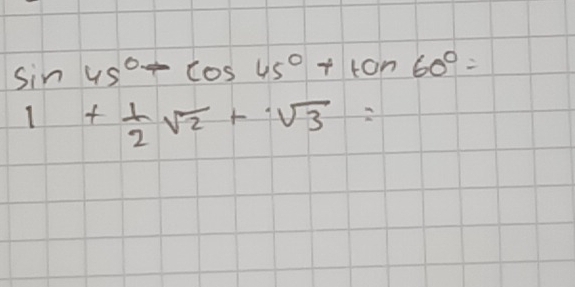 sin 45° + cos 45° + tan 60° =
1 + 1/2 √2 + √3 =